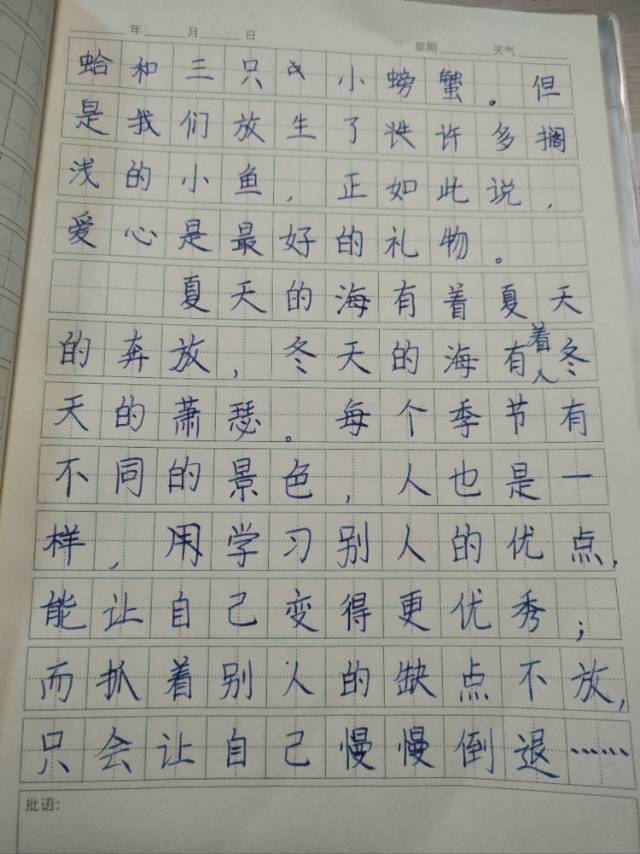 年 月 日 星期 天气
蛤和三只小螃蟹。但
是我们放生了许多搁
浅的小鱼，正如此说，
爱心是最好的礼物。
夏天的海有着夏天
的奔放，冬天的海有着冬
天的萧瑟。每个季节有
不同的景色，人也是一
样，用学习别人的优点，
能让自己变得更优秀；
而抓着别人的缺点不放，
只会让自己慢慢倒退……
批语：